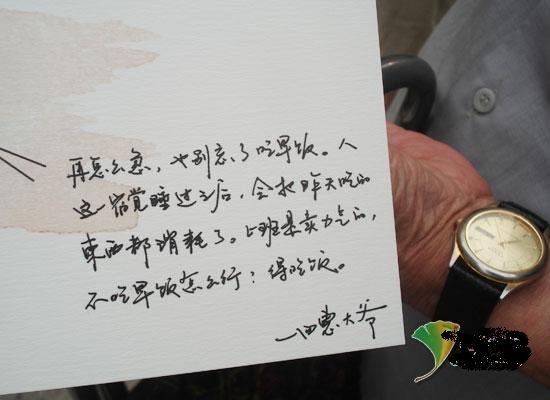 再怎么急，也别忘了吃早饭。人
这一宿觉睡过之后，会把昨天吃的
東西都消耗了。上班是卖力气的，
不吃早饭怎么行？得吃饭。
一田惠大爷